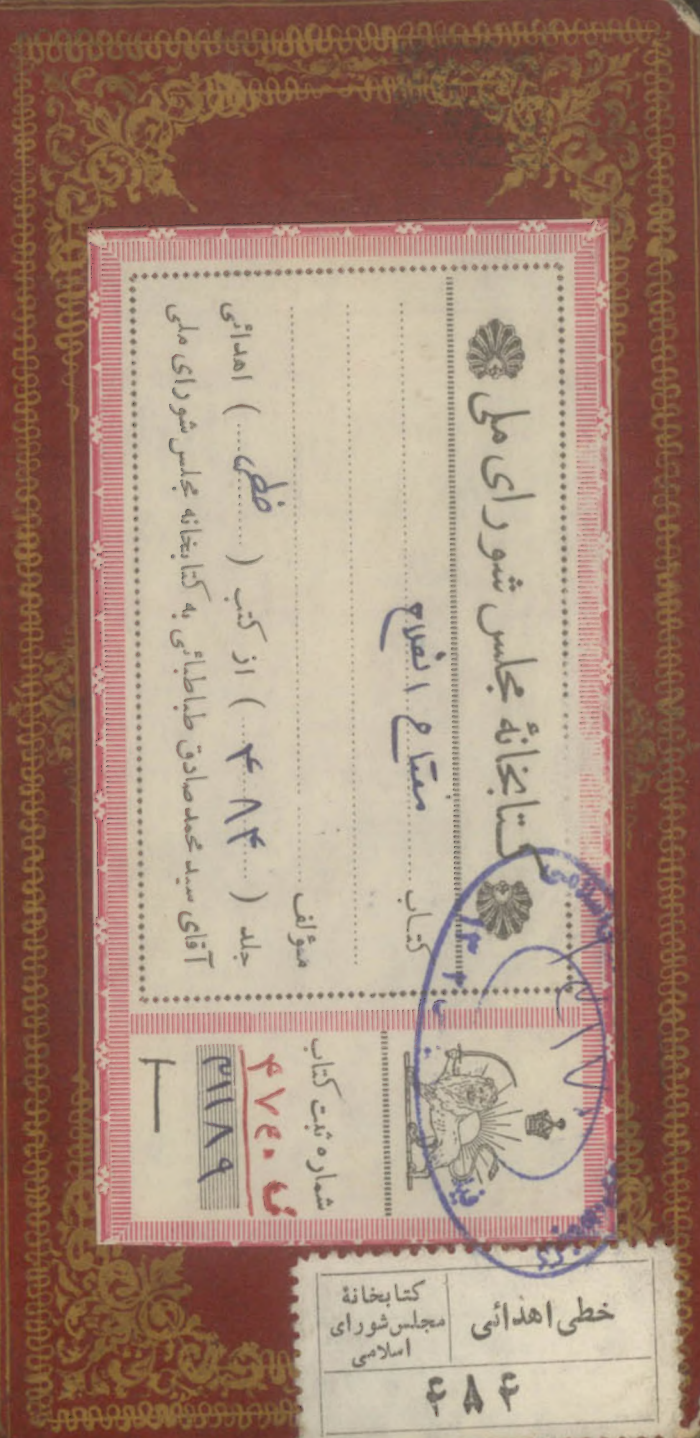 کتابخانهٔ مجلس شورای ملی
کتاب مفتاح الفلاح
مؤلف
جلد ( ۴۸۴ ) از کتب ( خطی ) اهدائی
آقای سید محمد صادق طباطبائی به کتابخانه مجلس شورای ملی
شماره ثبت کتاب
۳۱۱۸۹
خطی اهدائی
کتابخانهٔ
مجلس شورای
اسلامی
۴۸۴